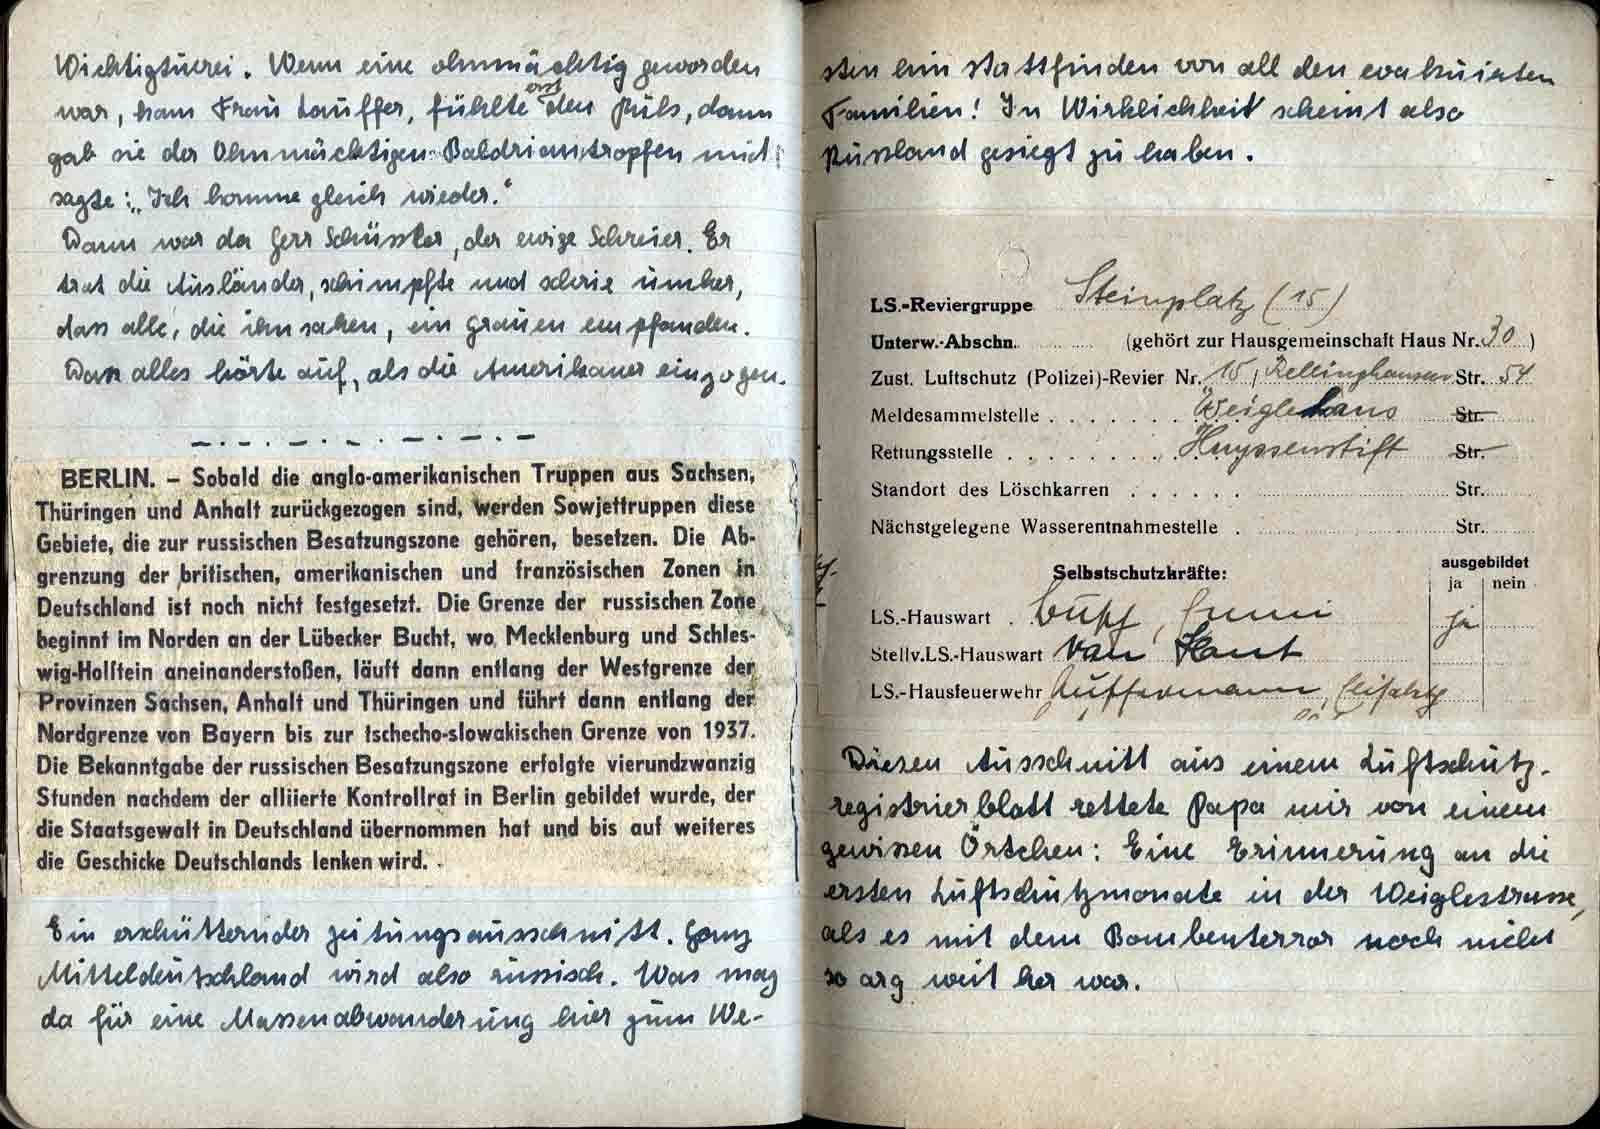 Wichtigtuerei. Wenn eine ohnmächtig geworden
war, kam Frau Lauffer, fühlte erst den Puls, dann
gab sie der Ohnmächtigen Baldriantropfen und
sagte: „Ich komme gleich wieder."
Dann war da Herr Schüssler, der ewige Schreier. Er
trat die Ausländer, schimpfte und schrie umher,
dass alle, die ihn sahen, ein Grauen empfanden.
Das alles hörte auf, als die Amerikaner einzogen.
BERLIN. – Sobald die anglo-amerikanischen Truppen aus Sachsen,
Thüringen und Anhalt zurückgezogen sind, werden Sowjettruppen diese
Gebiete, die zur russischen Besatzungszone gehören, besetzen. Die Ab-
grenzung der britischen, amerikanischen und französischen Zonen in
Deutschland ist noch nicht festgesetzt. Die Grenze der russischen Zone
beginnt im Norden an der Lübecker Bucht, wo Mecklenburg und Schles-
wig-Holstein aneinanderstoßen, läuft dann entlang der Westgrenze der
Provinzen Sachsen, Anhalt und Thüringen und führt dann entlang der
Nordgrenze von Bayern bis zur tschecho-slowakischen Grenze von 1937.
Die Bekanntgabe der russischen Besatzungszone erfolgte vierundzwanzig
Stunden nachdem der alliierte Kontrollrat in Berlin gebildet wurde, der
die Staatsgewalt in Deutschland übernommen hat und bis auf weiteres
die Geschicke Deutschlands lenken wird.
Ein erschütternder Zeitungsausschnitt. Ganz
Mitteldeutschland wird also russisch. Was mag
da für eine Massenabwanderung hier zum We-
sten hin stattfinden von all den evakuierten
Familien! In Wirklichkeit scheint also
Russland gesiegt zu haben.
LS.-Reviergruppe Steinplatz (15)
Unterw.-Abschn. (gehört zur Hausgemeinschaft Haus Nr. 30)
Zust. Luftschutz (Polizei)-Revier Nr. 15, Rellinghauser Str. 54
Meldesammelstelle Weiglehaus Str.
Rettungsstelle Huyssenstift Str.
Standort des Löschkarren Str.
Nächstgelegene Wasserentnahmestelle Str.
Selbstschutzkräfte: ausgebildet
ja nein
LS.-Hauswart ja
Stellv.LS.-Hauswart van
LS.-Hausfeuerwehr
Diesen Ausschnitt aus einem Luftschutz-
registrierblatt rettete Papa mir von einem
gewissen Örtchen: Eine Erinnerung an die
ersten Luftschutzmonate in der Weiglestrasse,
als es mit dem Bombenterror noch nicht
so arg weit her war.